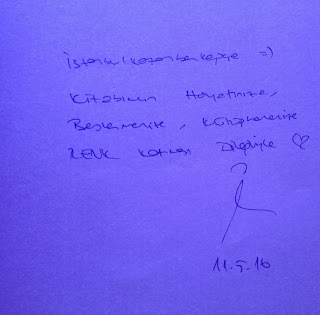 İstanbulkazanbenkepçe =)
Kitabımın Hayatınıza,
Beslenmenize, Kütüphanenize
RENK Katması Dileğiyle ♡
11.5.16